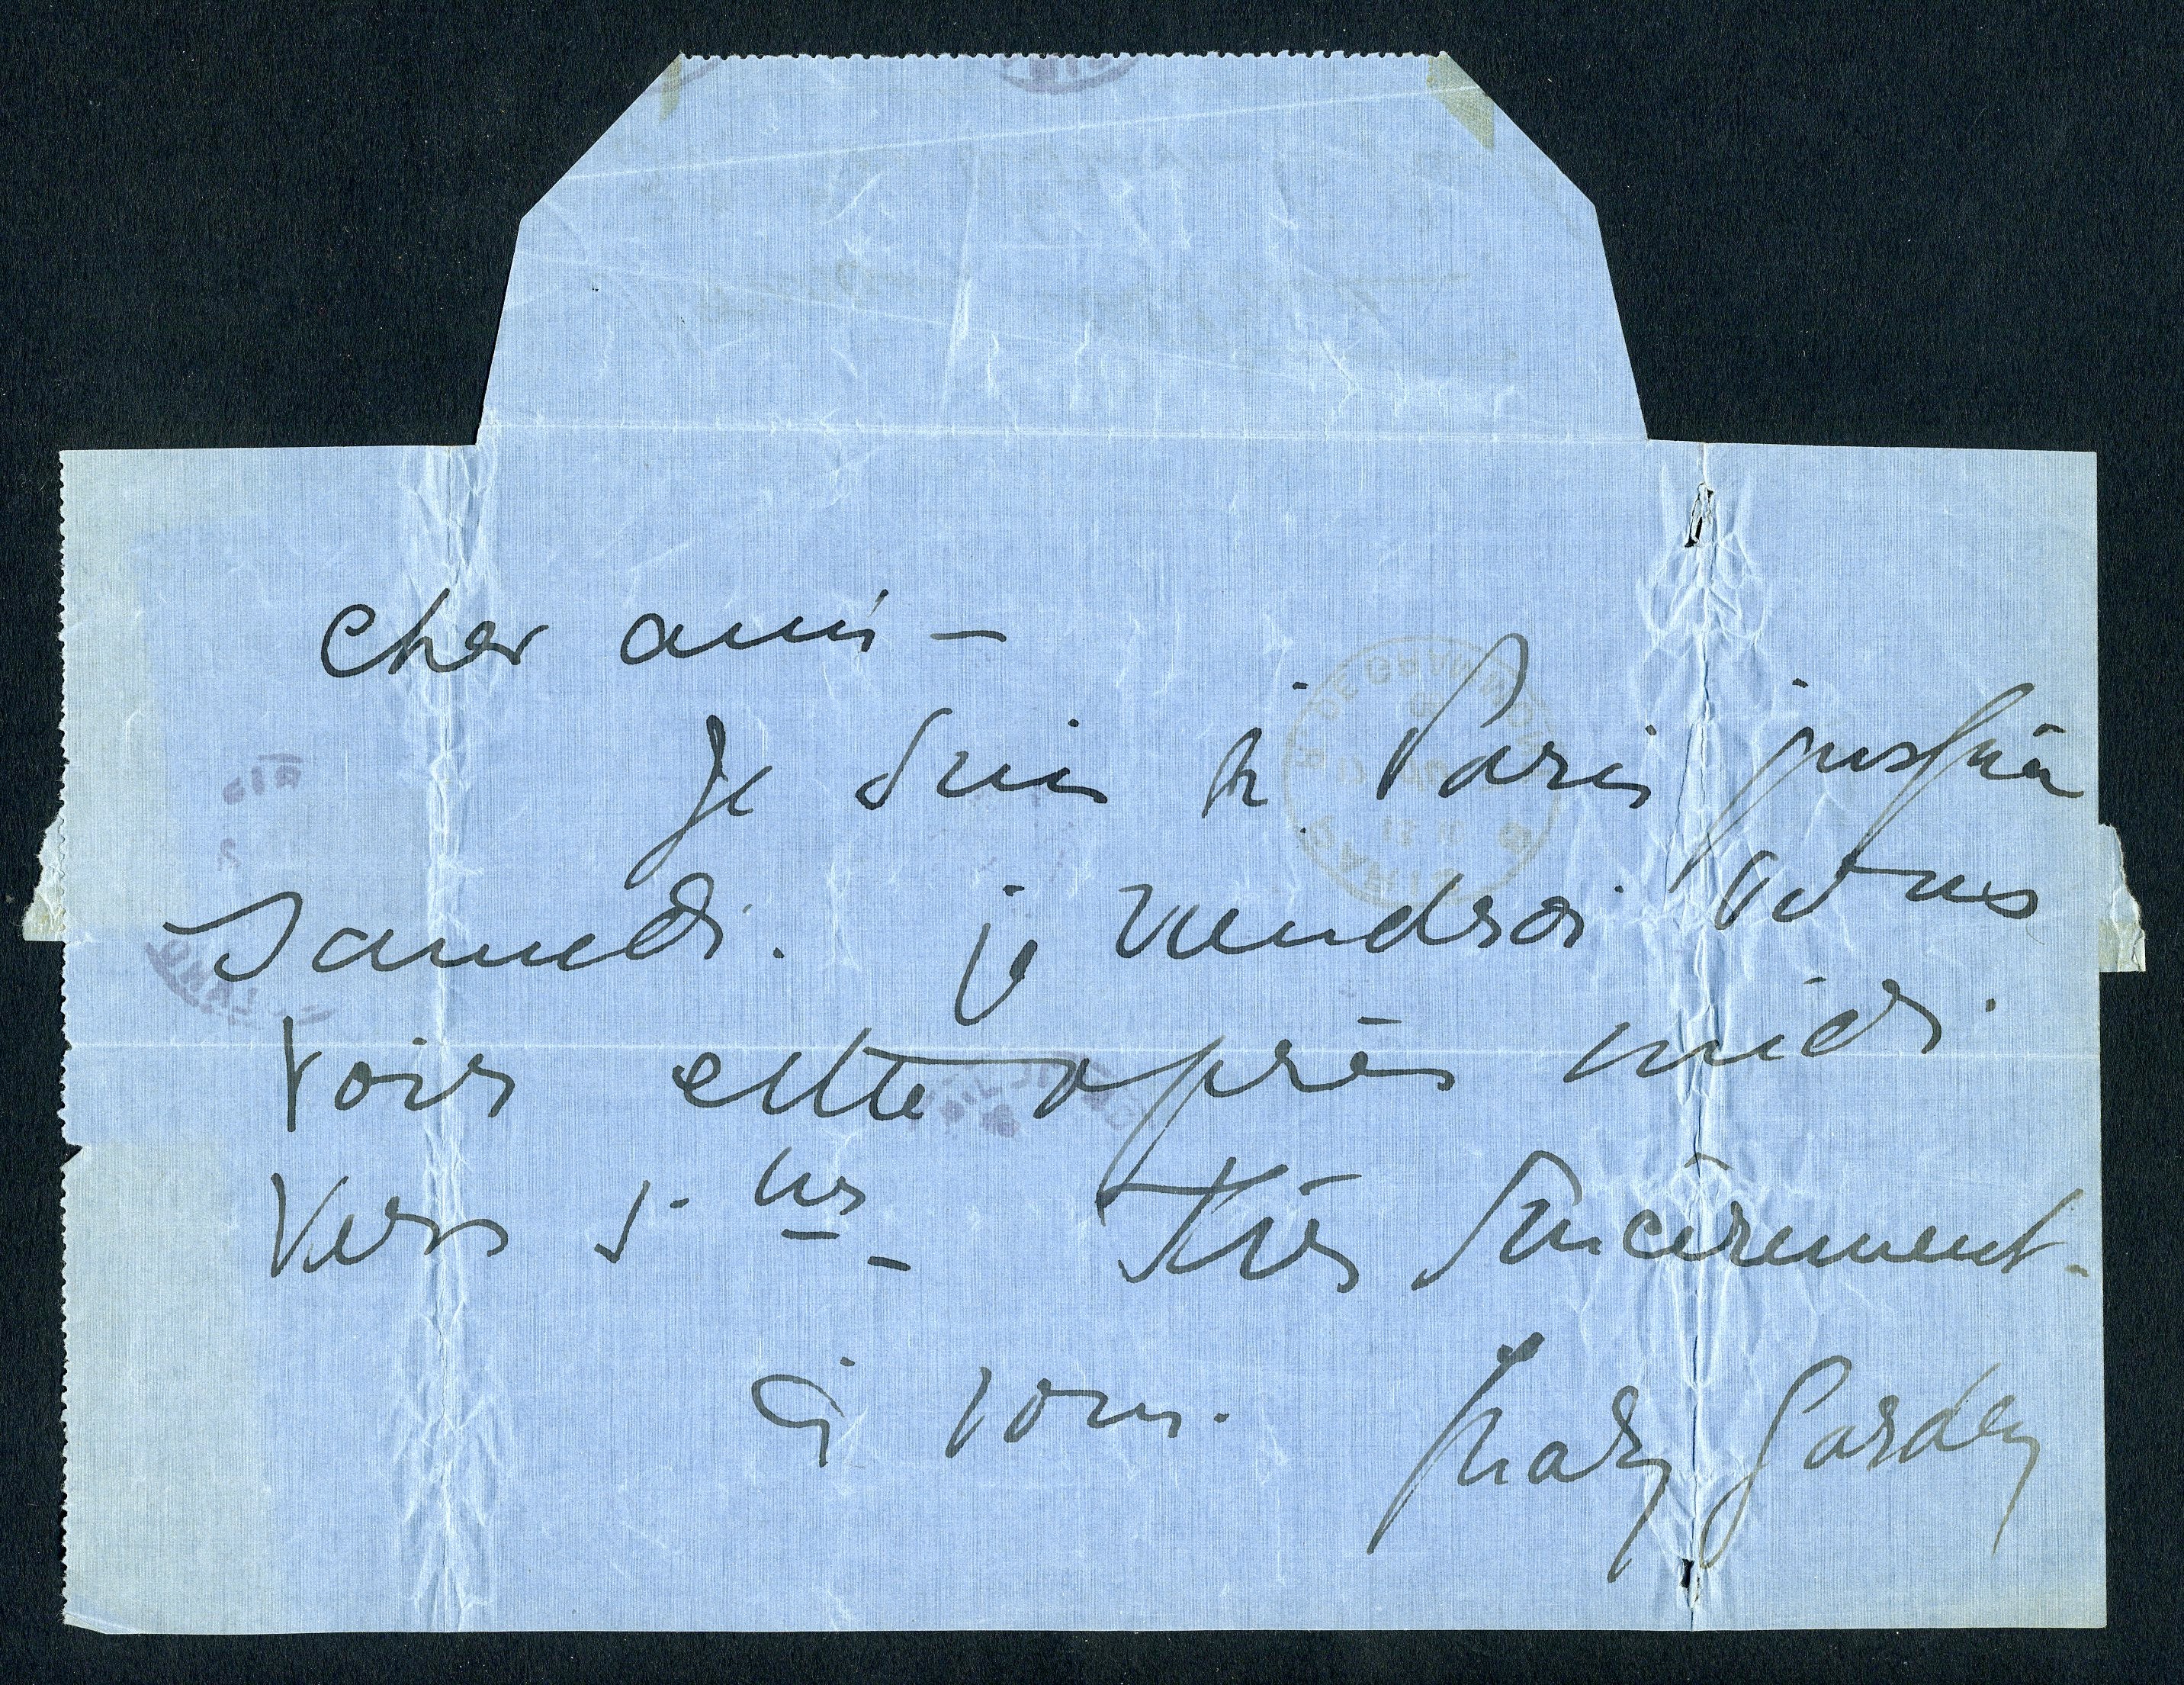 Cher ami —
Je suis à Paris jusqu'à
Samedi. je viendrai vous
voir cette après midi
vers 5. hrs — Très sincèrement -
à vous.
Mary Garden